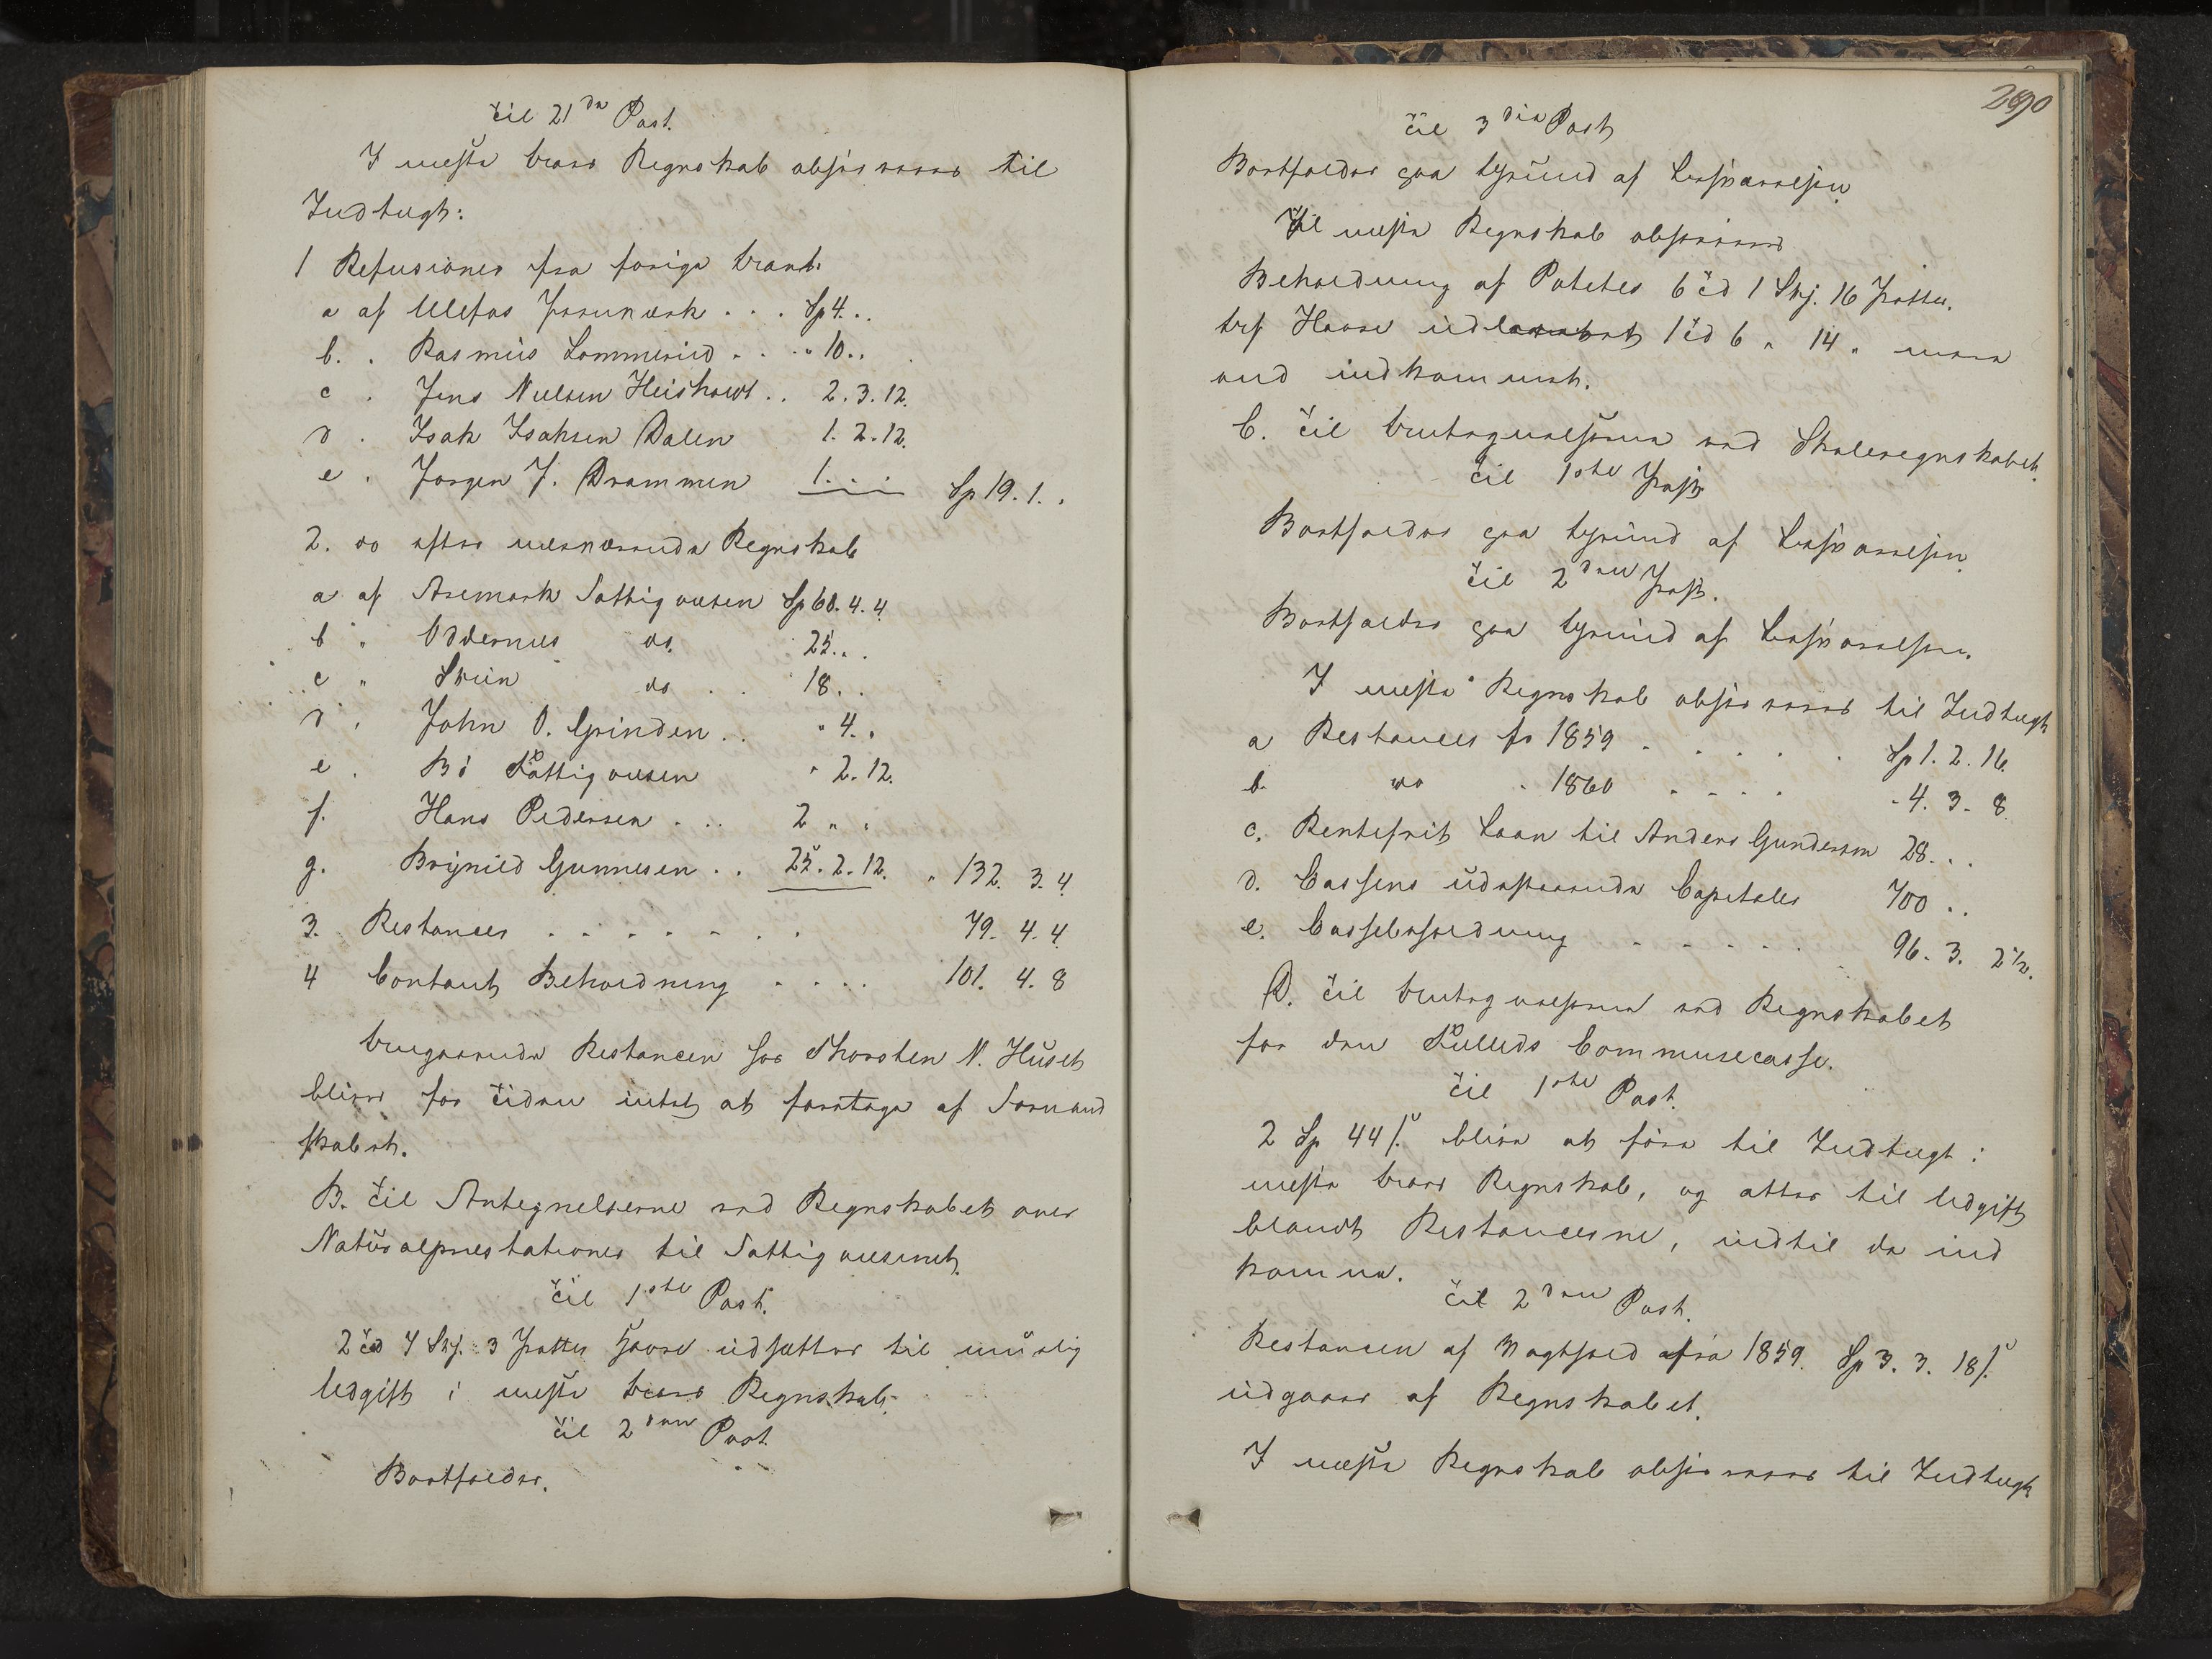 Til 21de Post.
I næste Aars Regnskab observeres til
Indtægt:
1 Refusioner fra forige Aar.
a af Ulefos Jernværk . . . Sp 4. .
b. . Rasmus Lommerud . . " 10. .
c . Jens Nielsen Heiskow . . 2. 3. 12.
d . Isak Isaksen Dalen 1. 2. 12.
e . Jørgen J. Drammen 1. . . Sp 19. 1. .
2. do efter nærværende Regnskab
a af Aremark Fattigvæsen Sp 60. 4. 4.
b " Oddernæs do. 25. . .
c " Skien do . . 18. .
d . John O. Grinden . . " 4. "
e . Bø Fattigvæsen " 2. 12.
f. Hans Pedersen . . . 2 " "
g. Brynild Gunnesen . . 25. 2. 12. " 132. 3. 4.
3. Restancer . . . . . . . 79. 4. 4.
4 Contant Beholdning . . . . 101. 4. 8
Angaaende Restancen hos Thorsten N. Huset
bliver for Tiden intet at foretage af Formand
skabet.
B. Til Antegnelserne ved Regnskabet over
Naturalprestationer til Fattigvæsenet.
Til 1ste Post.
2 Td 7 Skj. 3 Potter Havre udsættes til muelig
Udgift i næste Aars Regnskab.
Til 2den Post.
Bortfalder.
290
Til 3die Post
Bortfalder paa Grund af Besvarelsen.
Til næste Regnskab observeres
Beholdning af Potetes 6 Td 1 Skj. 16 Potter.
 Havre 1 Td 6 " 14 " 
 indkommet.
C. Til Antegnelserne ved Skoleregnskabet.
Til 1ste Post
Bortfalder paa Grund af Besvarelsen.
Til 2den Post.
Bortfalder paa Grund af Besvarelsen.
I næste Regnskab observeres til Indtægt
a Restancer fr 1859 . . . . . Sp 1. 2. 16.
b. do " 1860 . . . . " 4. 3. 8.
c. Rentefrit Laan til Anders Gundersen 28. . .
d. Cassens udestaaende Capitaler 700 . .
e. Cassebeholdning . . . . . 96. 3. 2½.
D. Til Antegnelserne ved Regnskabet
for den Communecasse.
Til 1ste Post.
2 Sp 44 ß. blive at føre til Indtægt i
næste Aars Regnskab, og atter til Udgift
blandt Restancerne, indtil de ind
komme.
Til 2den Post.
Restancen af Magthold fra 1859. Sp 3. 3. 18 ß.
udgaaer af Regnskabet.
I næste Regnskab observeres til Indtægt